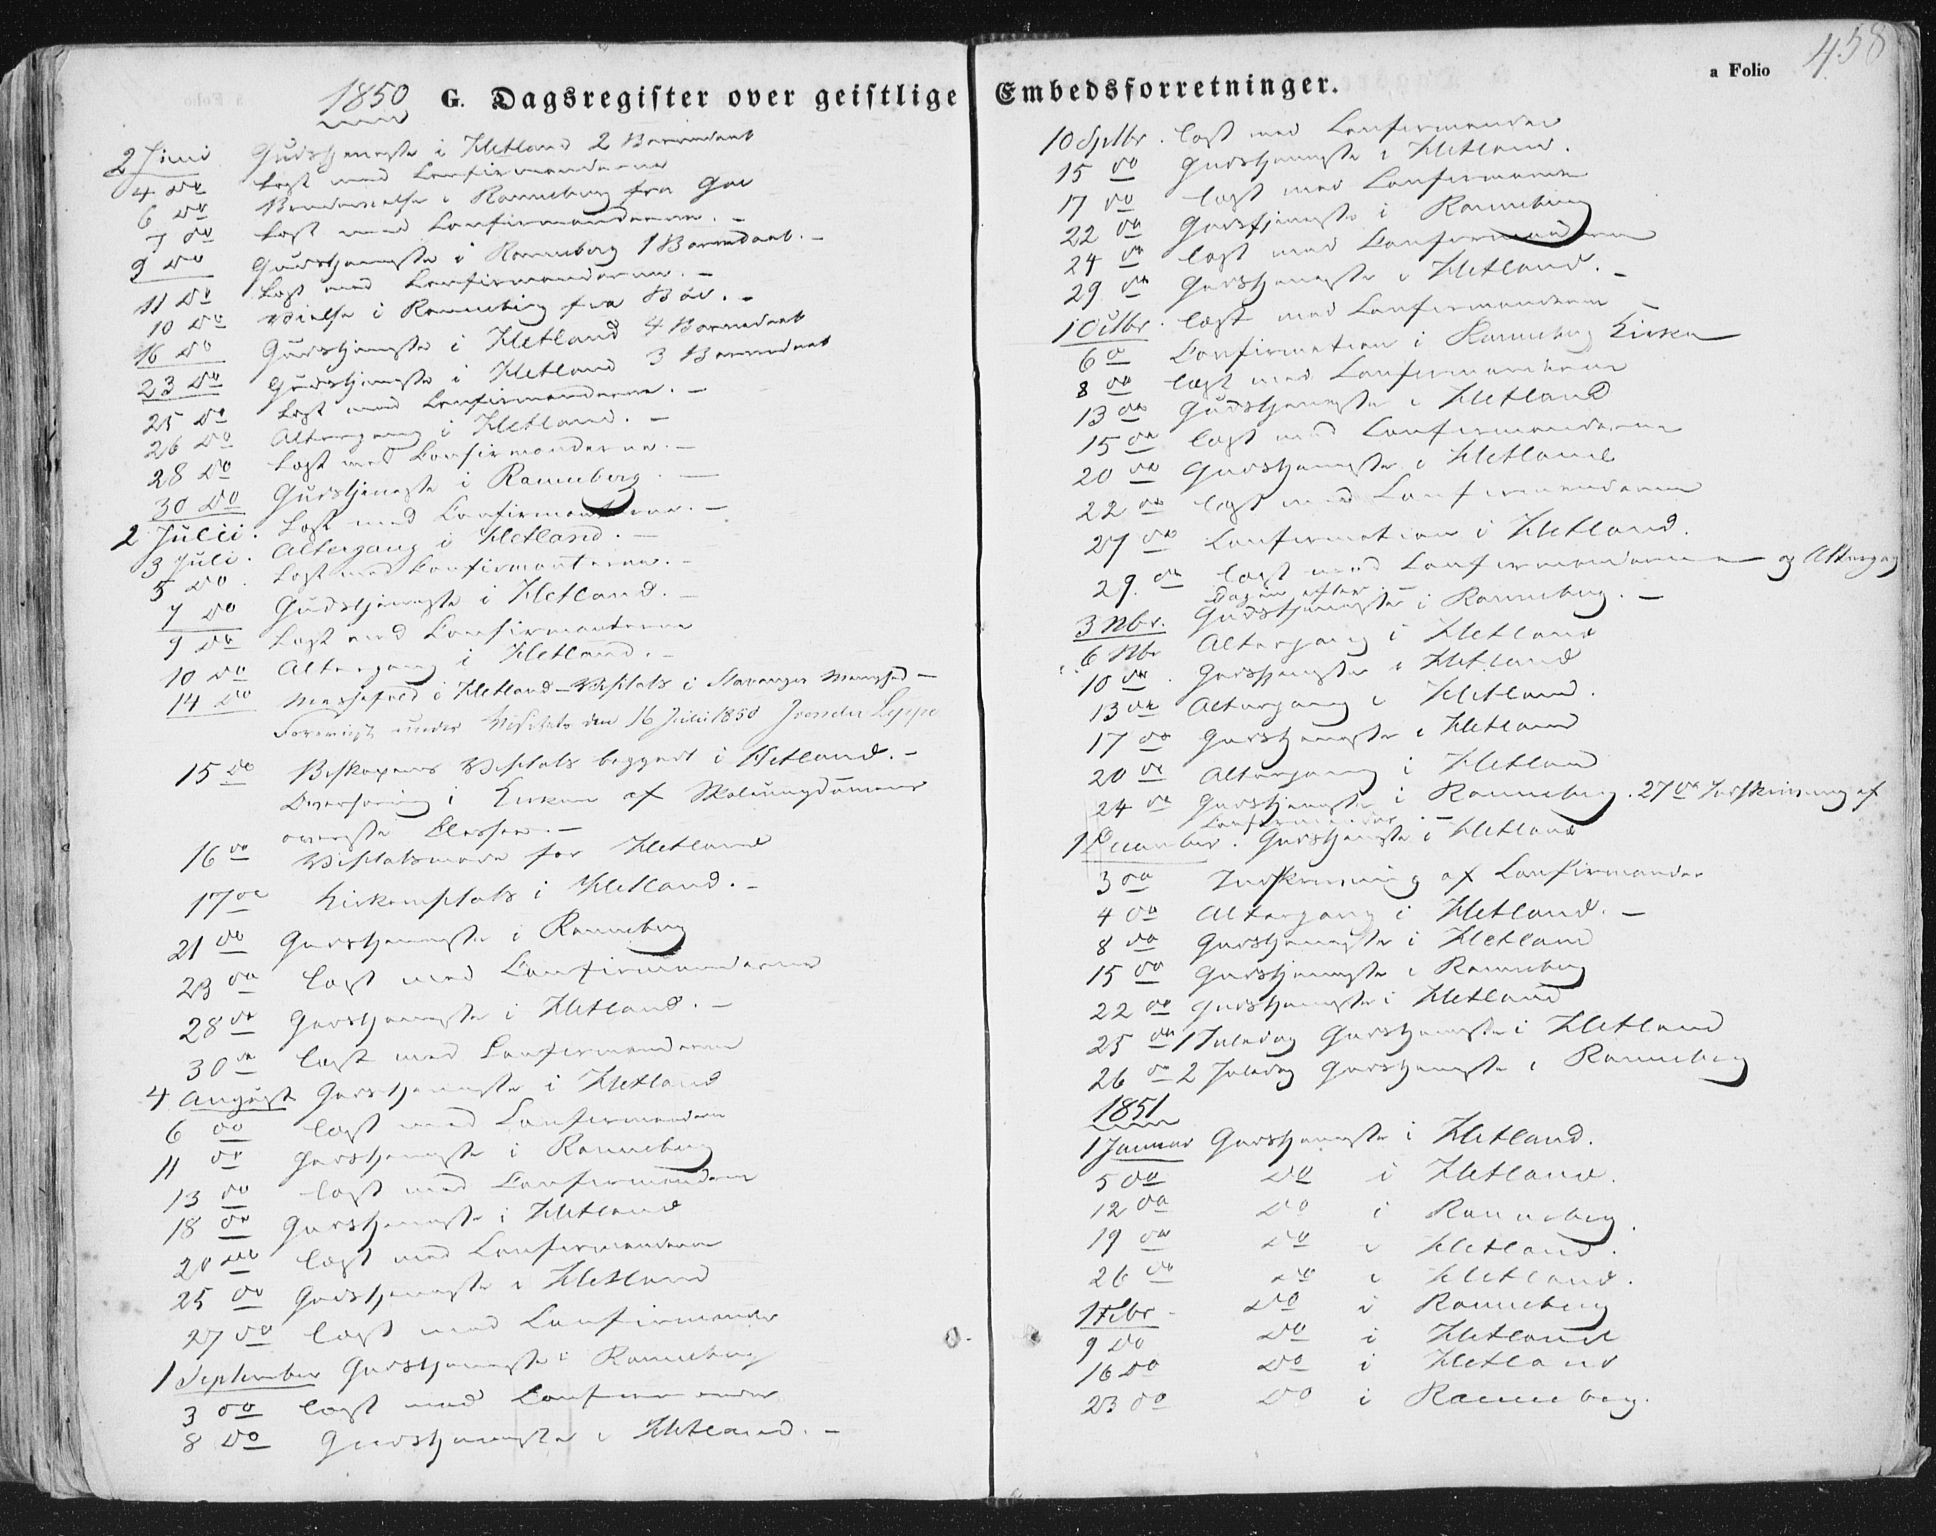 458
a Folio
1850 G. Dagsregister over geistlige Embedsforretninger.
2 Juni Gudstjeneste i Hetland 2 Barnedaab
4 do Læst med Confirmanderne
6 do i Renneberg fra
7 do Læst med Confirmanderne. –
9 do Gudstjeneste i Renneberg 1 Barnedaab. –
11 do Læst med Confirmanderne. –
10 do Vielse i Renneberg fra Bøe. –
16 do Gudstjeneste i Hetland 4 Barnedaab
23 do Gudstjeneste i Hetland 3 Barnedaab
25 do Læst med Confirmanderne. –
26 do Altergang i Hetland. –
28 do Læst med Confirmanderne. –
30 do Gudstjeneste i Renneberg. –
2 Julii. Læst med Confirmanterne. –
3 Juli. Altergang i Hetland. –
5 do. Læst med Confirmanterne. –
7 do Gudstjeneste i Hetland. –
9 do Læst med Confirmanterne
10 do Altergang i Hetland. –
14 do Messefald i Hetland – Visitats i Stavanger Menighed –
Foreviist under Visitats den 16 Julii 1850
15 do Biskopens Visitats begyndt i Hetland. –
Overhøring i Kirken af Skoleungdommens
øverste Classer. –
16 do for Hetland
17 do i Hetland. –
21 do Gudstjeneste i Renneberg
23 do læst med Confirmanderne
28 do Gudstjeneste i Hetland. –
30 do læst med Confirmanderne
4 August Gudstjeneste i Hetland
6 do læst med Confirmanderne
11 do Gudstjeneste i Renneberg
13 do læst med Confirmanderne
18 do Gudstjeneste i Hetland
20 do læst med Confirmanderne
25 do Gudstjeneste i Hetland
27 do læst med Confirmander
1 September Gudstjeneste i Renneberg
3 do læst med Confirmander
8 do Gudstjeneste i Hetland. –
10 Septbr. læst med Confirmander
15 do Gudstjeneste i Hetland.
17 do læst med Confirmanderne
22 do Gudstjeneste i Renneberg
24 do læst med Confirmanderne
29 do Gudstjeneste i Hetland. –
1 Octbr. læst med Confirmanderne –
6 do Confirmation i Renneberg Kirke
8 do læst med Confirmanderne
13 do Gudstjeneste i Hetland
15 do læst med Confirmanderne
20 do Gudstjeneste i Hetland
22 do læst med Confirmanderne
27 do Confirmation i Hetland.
29. do læst med Confirmanderne og Altergang
Dagen efter –
3 Nbr. Gudstjeneste i Renneberg. –
6 Nbr Altergang i Hetland
10 do. Gudstjeneste i Hetland
13 do Altergang i Hetland.
17 do Gudstjeneste i Hetland
20 do Altergang i Hetland
24 do Gudstjeneste i Renneberg. 27 do Indskrivning af
Confirmander –
1 December. Gudstjeneste i Hetland
3 do Indskrivning af Confirmander
4 do Altergang i Hetland. –
8 do Gudstjeneste i Hetland
15 do Gudstjeneste i Renneberg
22 do Gudstjeneste i Hetland
25 do 1 Juledag Gudstjeneste i Hetland
26 do 2 Juledag Gudstjeneste i Renneberg
1851
1 Januar Gudstjeneste i Hetland.
5 do do i Hetland.
12 do do i Renneberg.
19 do do i Hetland.
26 do do i Hetland.
1 Febr. do i Renneberg
9 do do i Hetland
16 do do i Hetland
23 do do i Renneberg.